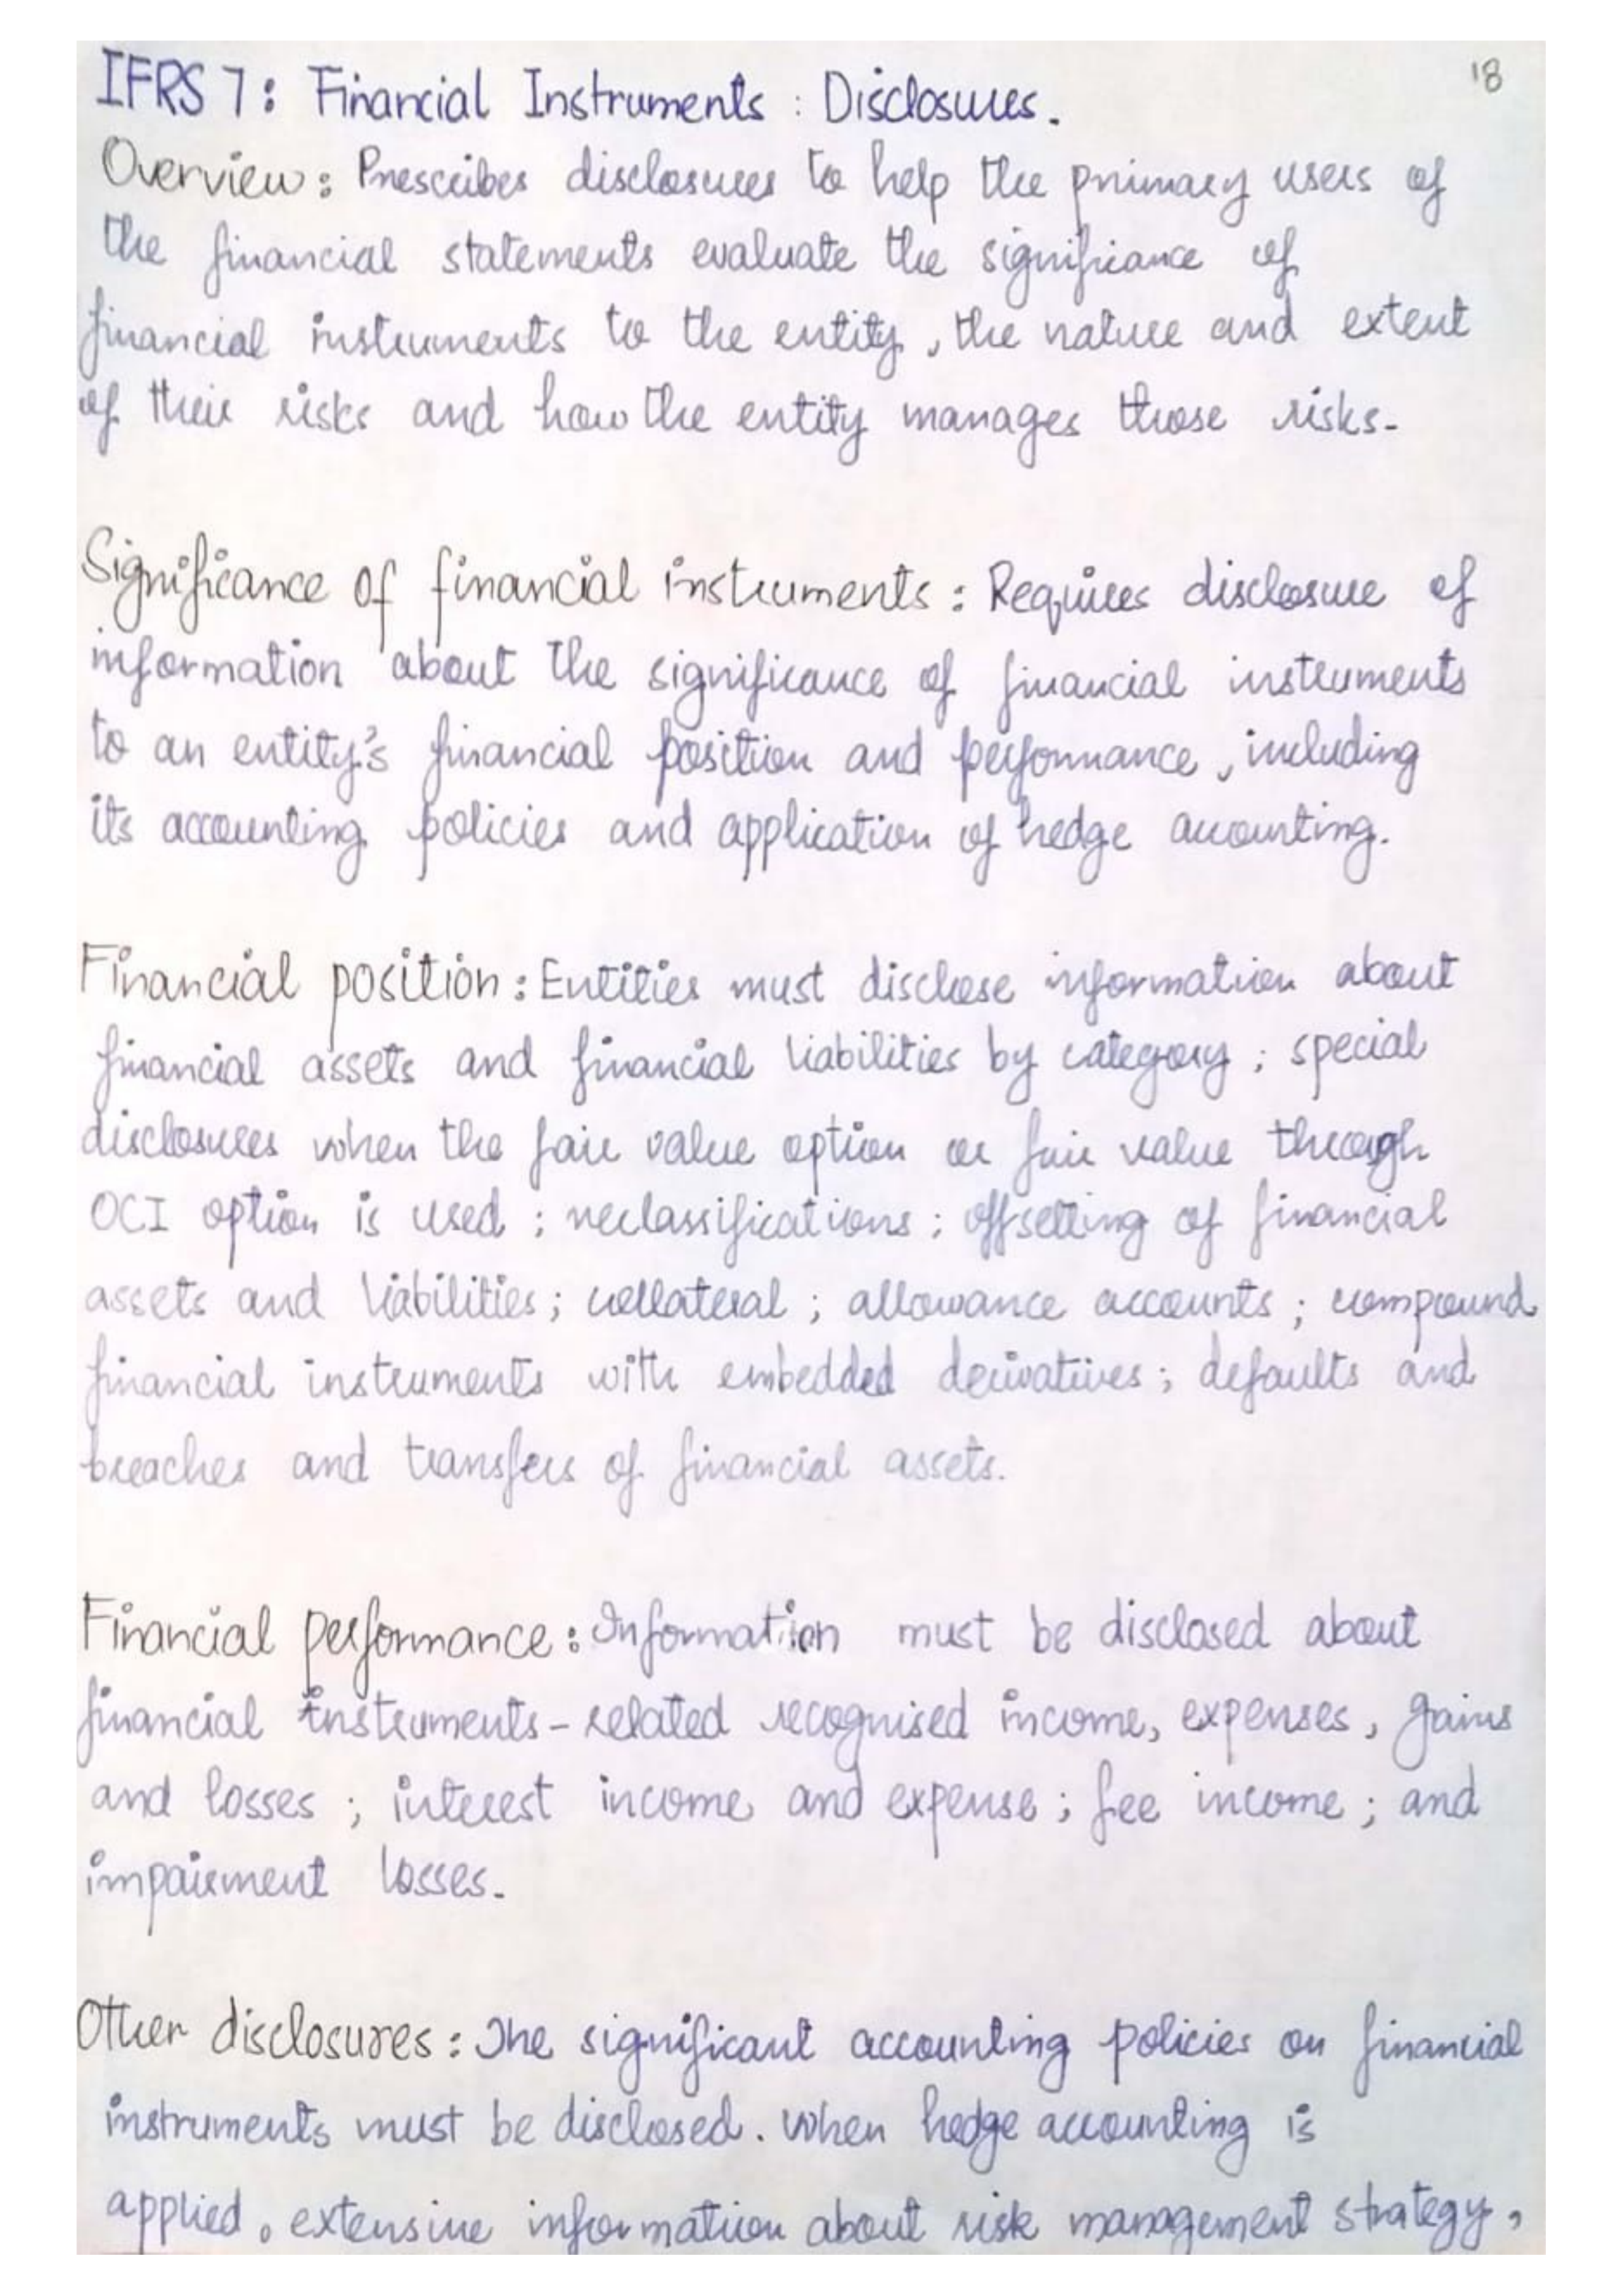 18
IFRS 7: Financial Instruments : Disclosures.
Overview: Prescribes disclosures to help the primary users of
the financial statements evaluate the significance of
financial instruments to the entity, the nature and extent
of their risks and how the entity manages those risks.
Significance of financial instruments: Requires disclosure of
information about the significance of financial instruments
to an entity's financial position and performance, including
its accounting policies and application of hedge accounting.
Financial position: Entities must disclose information about
financial assets and financial liabilities by category; special
disclosures when the fair value option or fair value through
OCI option is used; reclassifications; offsetting of financial
assets and liabilities; collateral; allowance accounts; compound
financial instruments with embedded derivatives; defaults and
breaches and transfers of financial assets.
Financial performance: Information must be disclosed about
financial instruments-related recognised income, expenses, gains
and losses; interest income and expense; fee income; and
impairment losses.
Other disclosures: The significant accounting policies on financial
instruments must be disclosed. When hedge accounting is
applied, extensive information about risk management strategy,